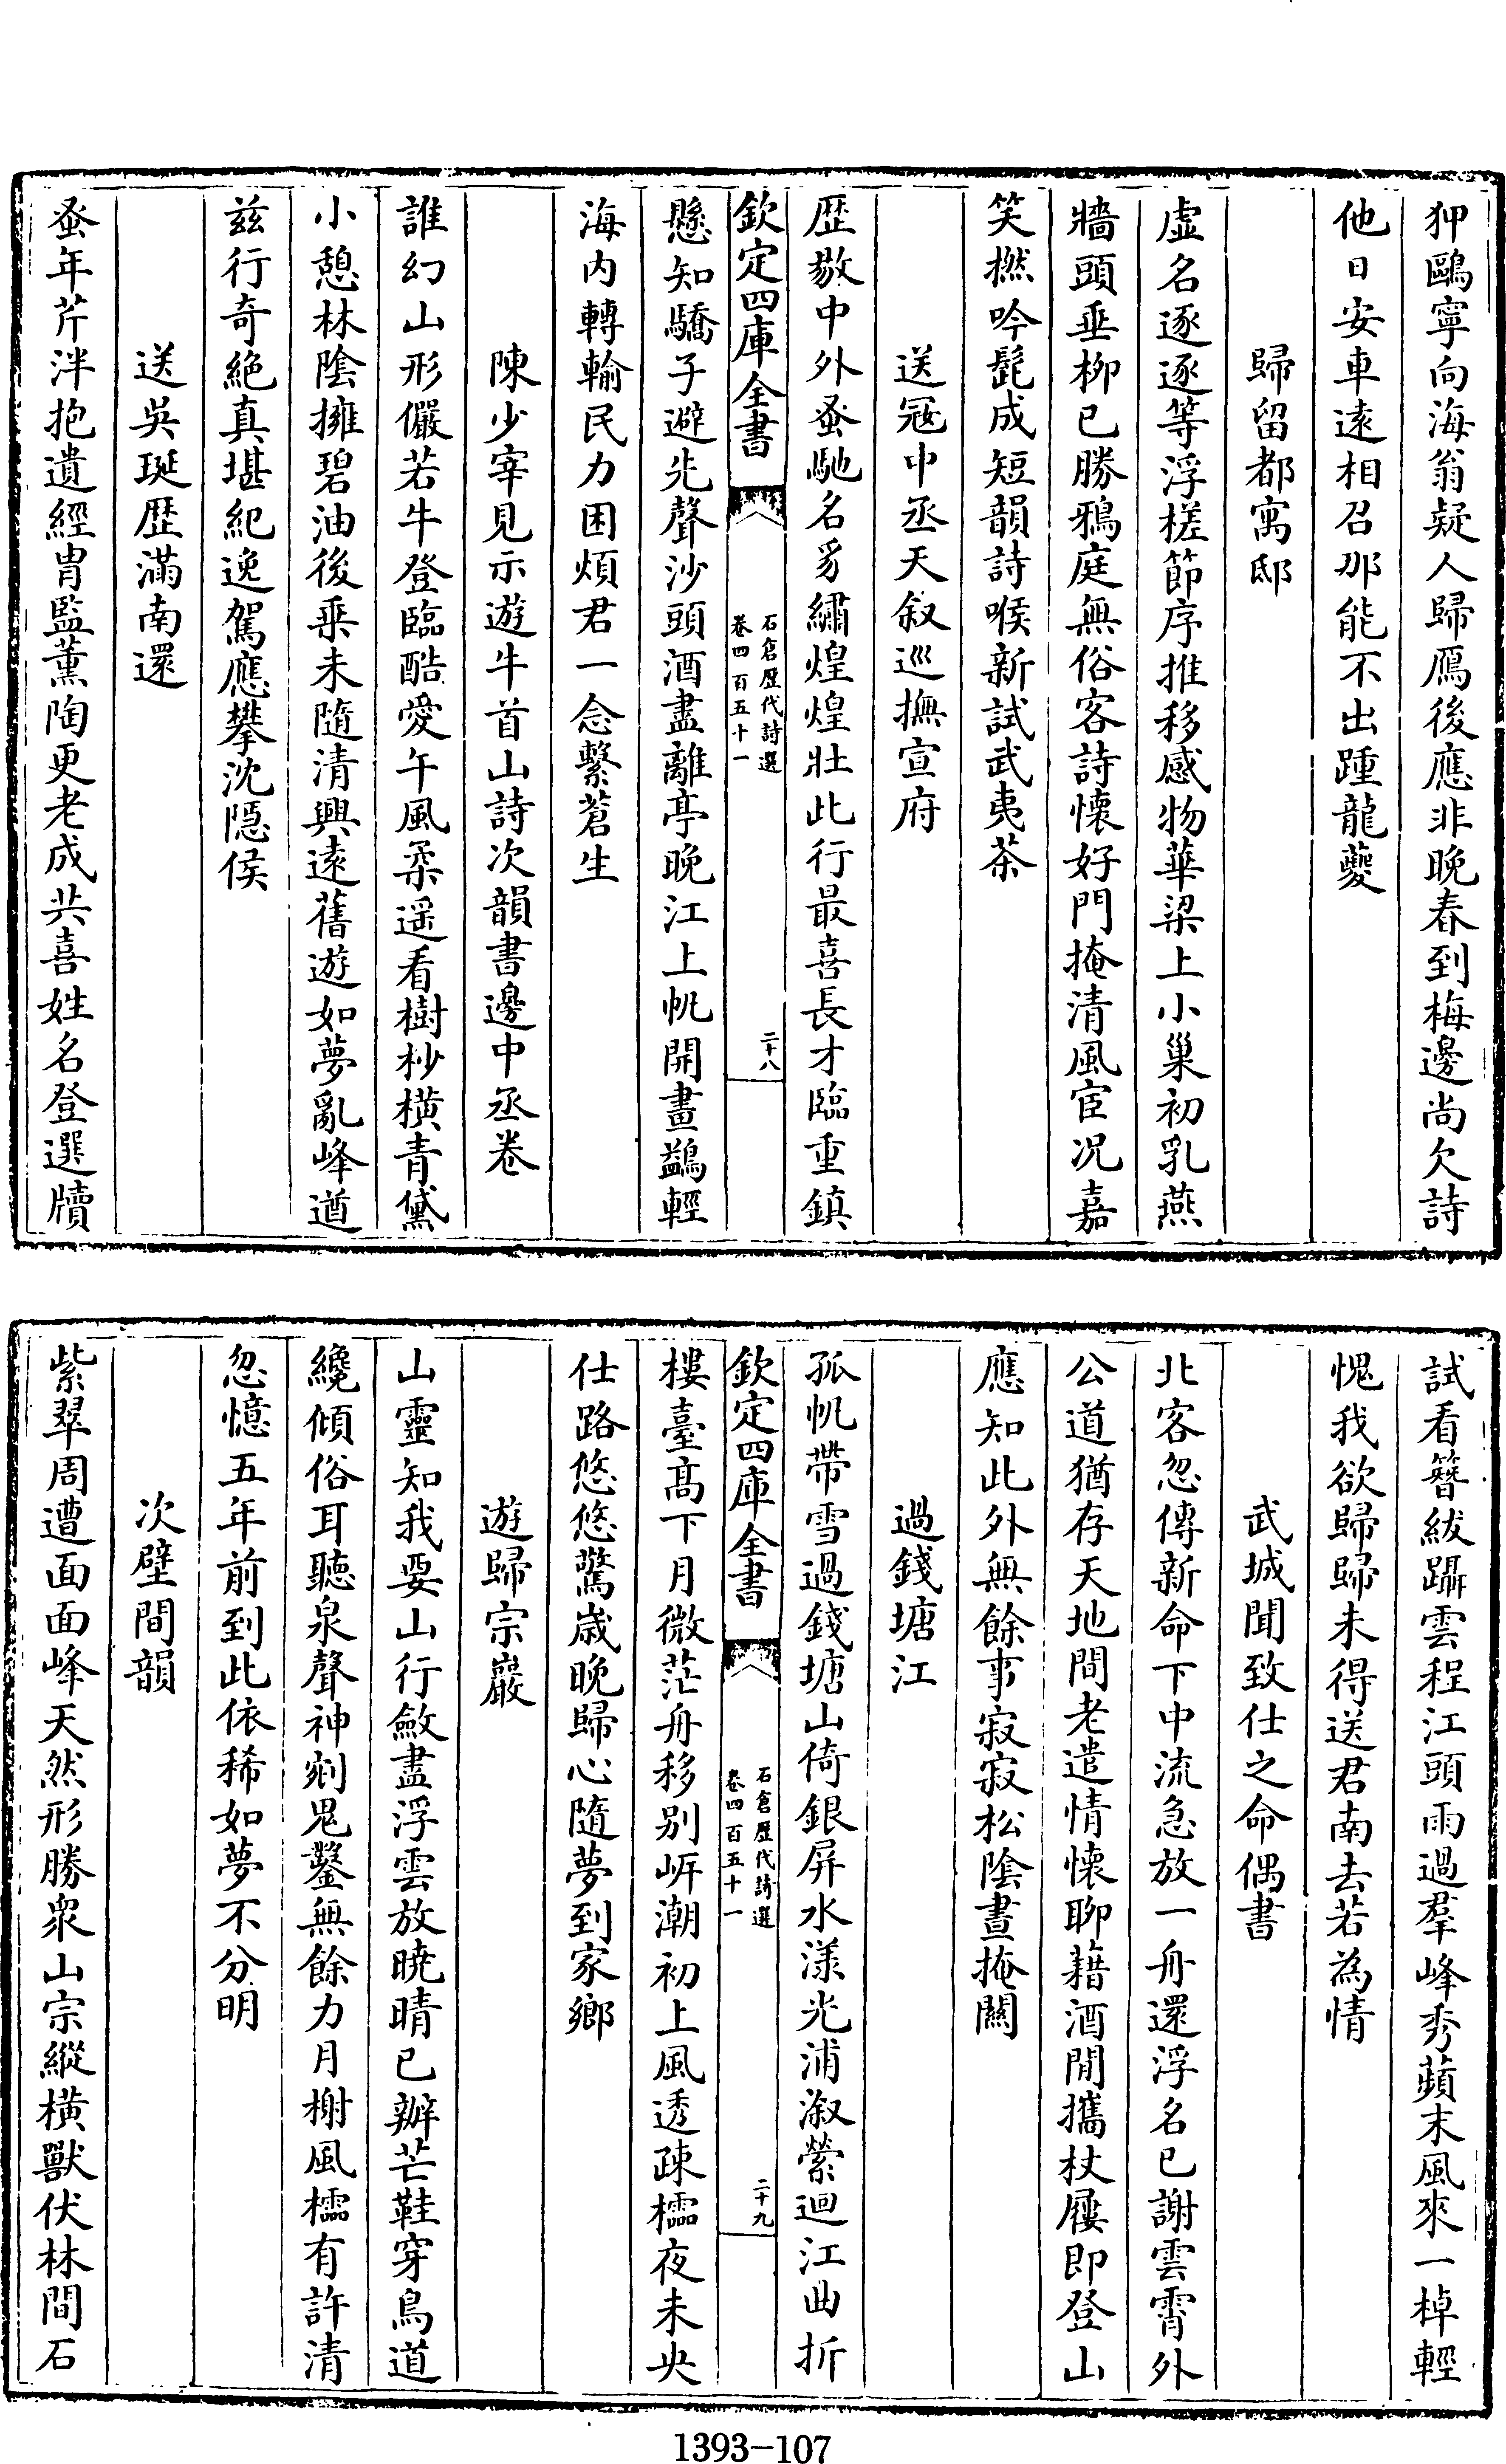 狎鷗寧向海翁疑人歸鴈後應非晚春到梅邊尚欠詩
他日安車遠相召那能不出踵龍夔
歸留都寓邸
虚名逐逐等浮槎節序推移感物華梁上小巢初乳燕
牆頭垂柳已勝鴉庭無俗客詩懷好門掩清風宦况嘉
笑撚吟髭成短韻詩喉新試武夷茶
送冦中丞天叙巡撫宣府
歴敭中外蚤馳名豸繡煌煌壯此行最喜長才臨重鎮
欽定四庫全書
石倉歴代詩選
卷四百五十一
二十八
懸知驕子避先聲沙頭酒盡離亭晚江上帆開畫鷁輕
海内轉輸民力困煩君一念繫蒼生
陳少宰見示遊牛首山詩次韻書邊中丞卷
誰幻山形儼若牛登臨酷愛午風柔遥看樹杪横青黛
小憩林陰擁碧油後乘未隨清興遠舊遊如夢亂峰遒
兹行奇絶真堪紀逸駕應攀沈隱侯
送吳珽歴滿南還
蚤年芹泮抱遺經胄監薰陶更老成共喜姓名登選牘
試看簪紱躡雲程江頭雨過羣峰秀蘋末風來一棹輕
愧我欲歸歸未得送君南去若為情
武城聞致仕之命偶書
北客忽傳新命下中流急放一舟還浮名已謝雲霄外
公道猶存天地間老遣情懷聊藉酒閒攜杖屨即登山
應知此外無餘事寂寂松陰晝掩關
過錢塘江
孤帆帶雪過錢塘山倚銀屏水漾光浦溆縈迴江曲折
欽定四庫全書
石倉歴代詩選
卷四百五十一
二十九
樓臺髙下月微茫舟移别㟁潮初上風透疎櫺夜未央
仕路悠悠驚歲晚歸心隨夢到家鄉
遊歸宗巖
山靈知我耍山行斂盡浮雲放曉晴已辦芒鞋穿鳥道
纔傾俗耳聽泉聲神剜鬼鑿無餘力月榭風櫺有許清
忽憶五年前到此依稀如夢不分明
次壁間韻
紫翠周遭面面峰天然形勝衆山宗縱橫獸伏林間石
1393-107